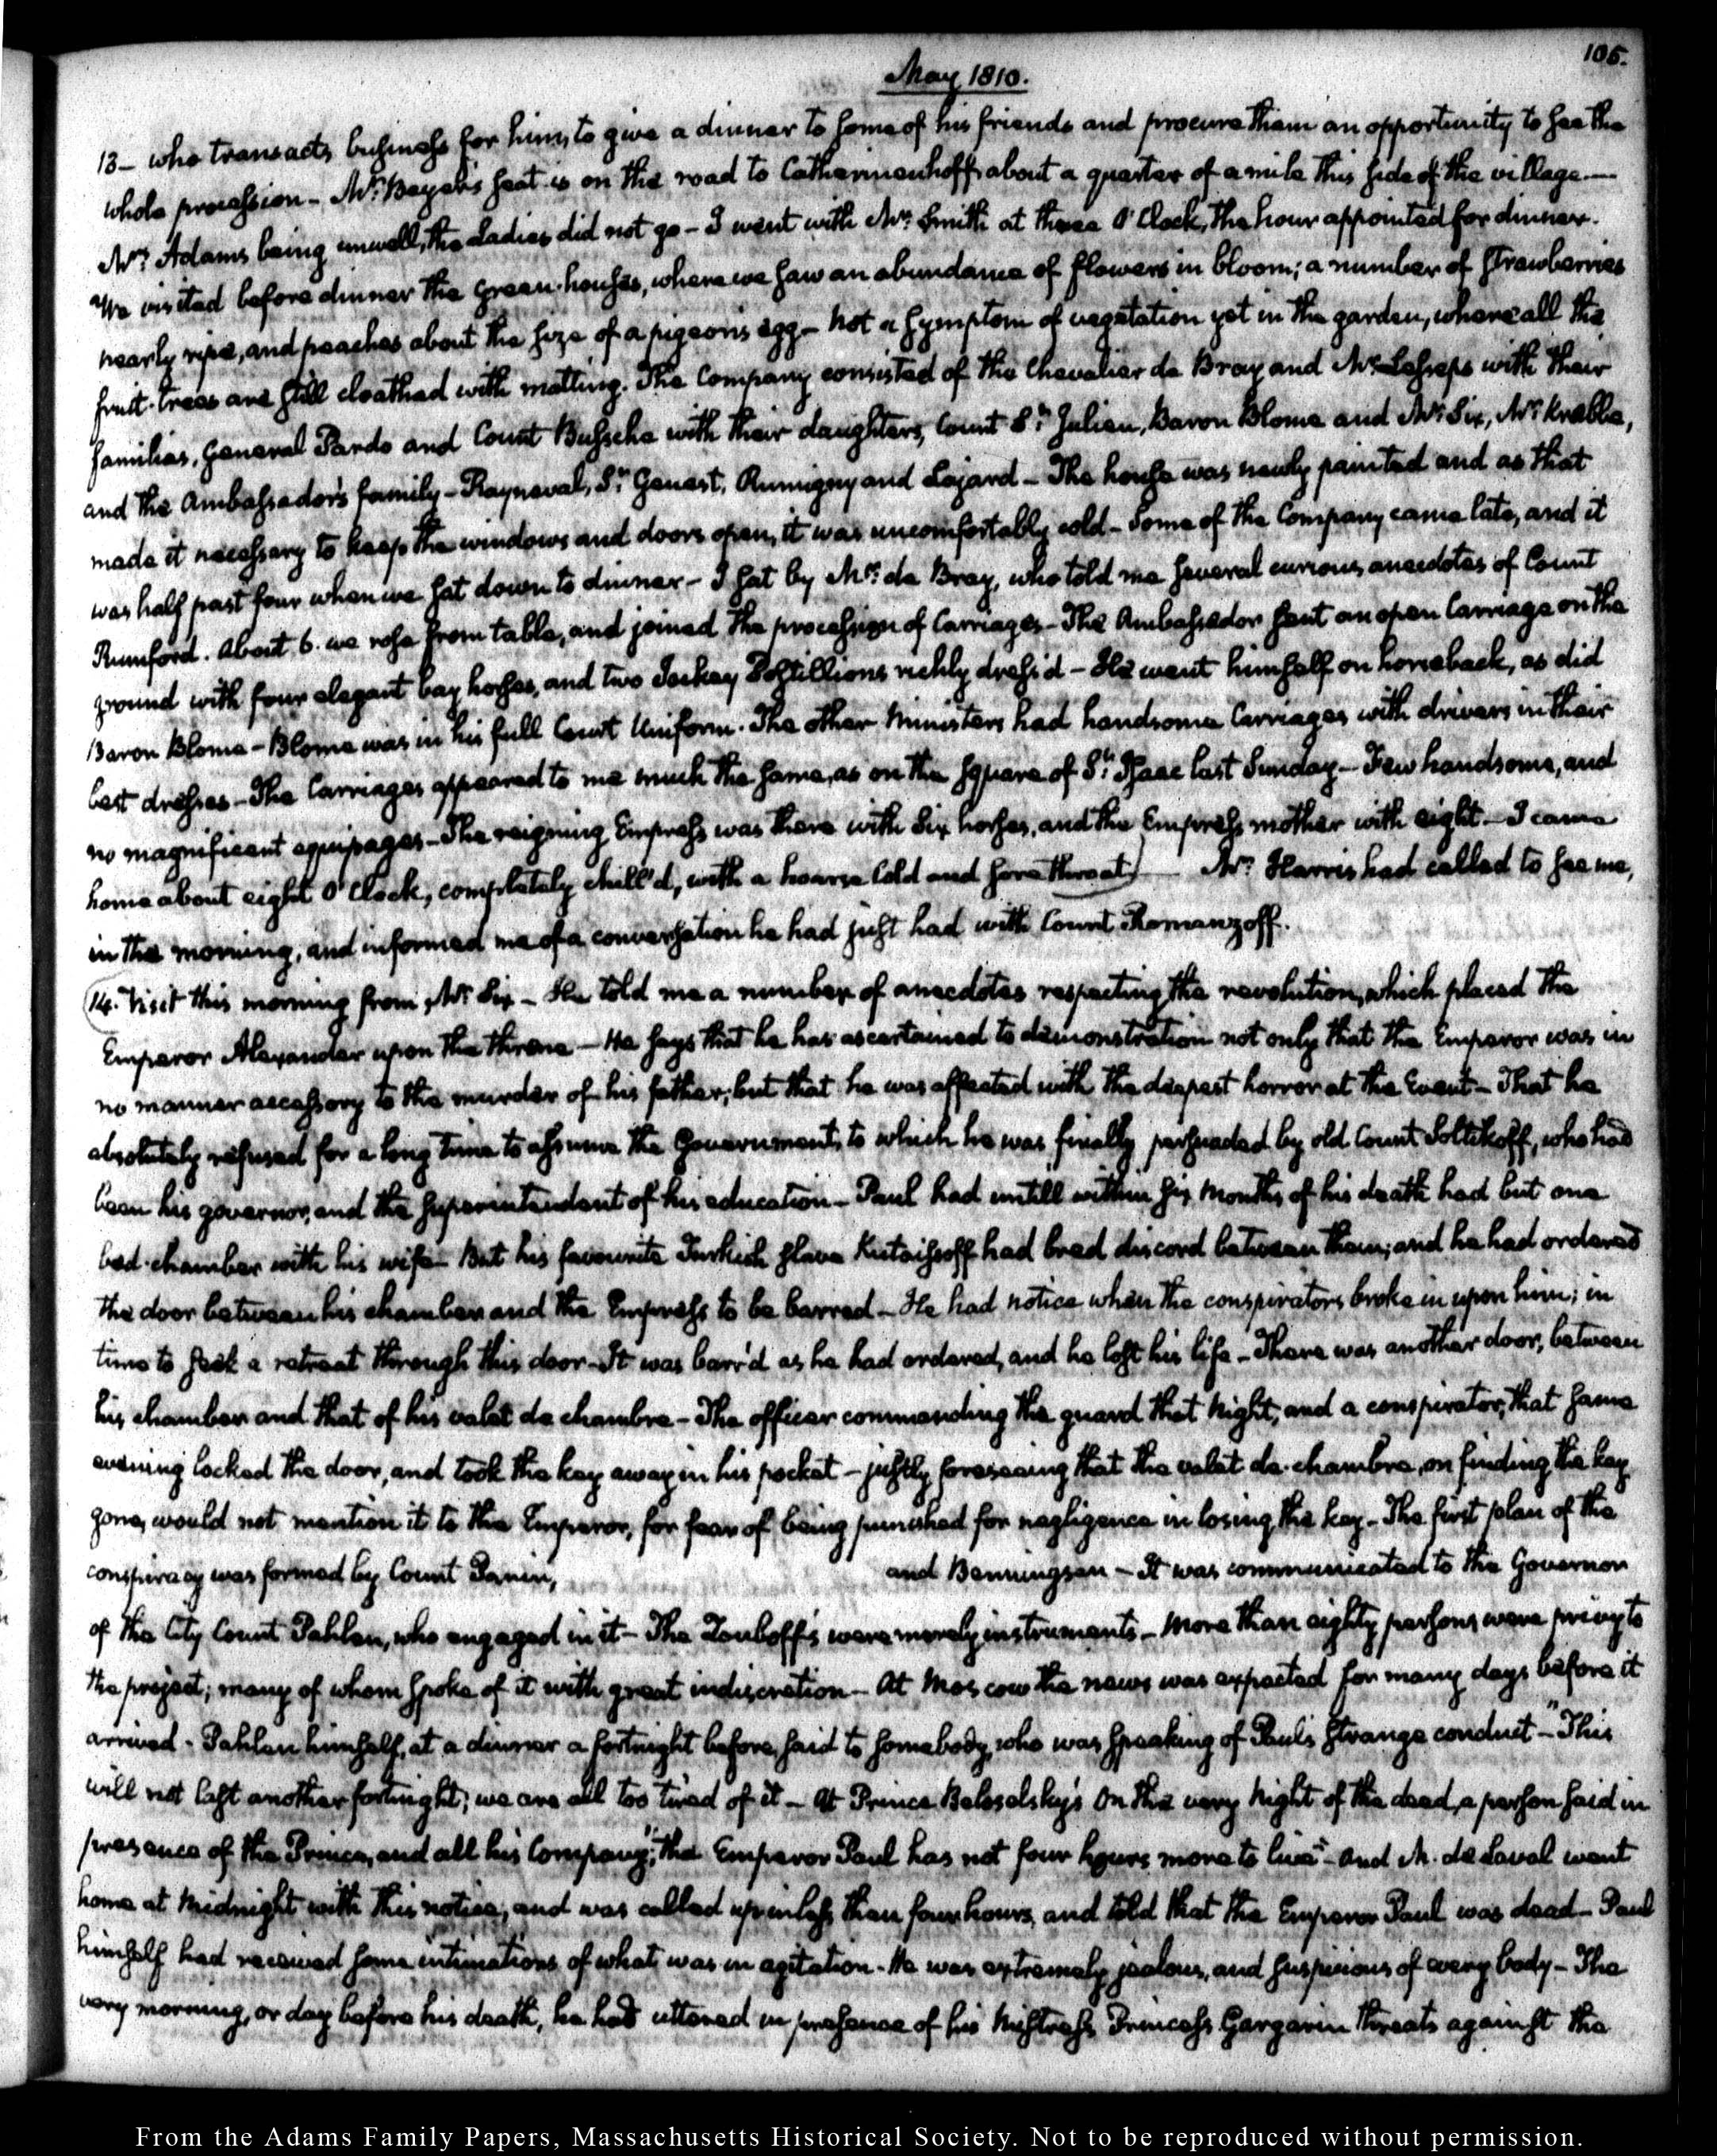 105.
May 1810.
13— who transacts business for him, to give a dinner to some of his friends and procure them an opportunity to see the
whole procession— Mr. Bergien's seat is on the road to Catherinenhoff, about a quarter of a mile this side of the village.—
Mrs. Adams being unwell, the Ladies did not go— I went with Mr. Smith at three O'Clock, the hour appointed for dinner.
We visited before dinner the green-houses, where we saw an abundance of flowers in bloom; a number of strawberries
nearly ripe, and peaches about the size of a pigeon's egg— Not a symptom of vegetation yet in the garden, where all the
fruit-trees are still cloathed with matting. The Company consisted of the Chevalier de Bray and Mr. Lesseps with their
families, General Pardo and Count Bussche with their daughters, Count St. Julien, Baron Blome and Mr. Six, Mr. Krabbe,
and the Ambassador's family— Rayneval, St. Genest, Rumigny and Lajard— The house was newly painted and as that
made it necessary to keep the windows and doors open, it was uncomfortably cold— Some of the Company came late, and it
was half past four when we sat down to dinner— I sat by Mr. de Bray, who told me several curious anecdotes of Count
Rumford. About 6. we rose from table, and joined the procession of Carriages— The Ambassador sent an open Carriage on the
ground with four elegant bay horses, and two Jockey Postillions richly dress'd— He went himself on horseback, as did
Baron Blome— Blome was in his full Court Uniform. The other Ministers had handsome Carriages with drivers in their
best dresses— The Carriages appeared to me much the same, as on the square of St. Isaac last Sunday— Few handsome, and
no magnificent equipages— The reigning Empress was there with six horses, and the Empress mother with eight— I came
home about eight O'Clock, completely chill'd, with a hoarse Cold and sore throat) — Mr. Harris had called to see me,
in the morning, and informed me of a conversation he had just had with Count Romanzoff.
14. Visit this morning from Mr. Six— He told me a number of anecdotes respecting the revolution, which placed the
Emperor Alexander upon the throne— He says that he has ascertained to demonstration not only that the Emperor was in
no manner accessory to the murder of his father, but that he was affected with the deepest horror at the Event— That he
absolutely refused for a long time to assume the Government, to which he was finally persuaded by old Count Soltikoff, who had
been his governor, and the superintendent of his education— Paul had untill within six Months of his death had but one
bed-chamber with his wife— But his favourite Turkish slave Kutaissoff had bred discord between them; and he had ordered
the door between his chamber and the Empress to be barred— He had notice when the conspirators broke in upon him; in
time to seek a retreat through this door— It was barr'd as he had ordered, and he lost his life— There was another door, between
his chamber and that of his valet de chambre— The officer commanding the guard that Night, and a conspirator, that same
evening locked the door, and took the key away in his pocket— justly foreseeing that the valet de-chambre, on finding the key
gone, would not mention it to the Emperor, for fear of being punished for negligence in losing the key— The first plan of the
conspiracy was formed by Count Panin, and Benningsen— It was communicated to the Governor
of the City Count Pahlen, who engaged in it— The Zouboff's were merely instruments— More than eighty persons were privy to
the project; many of whom spoke of it with great indiscretion— At Moscow the news was expected for many days before it
arrived— Pahlen himself, at a dinner a fortnight before, said to somebody, who was speaking of Paul's strange conduct— "This
will not last another fortnight; we are all too tired of it— At Prince Beloselsky's On the very Night of the deed, a person said in
presence of the Prince, and all his Company, "the Emperor Paul has not four hours more to live"— and M. de Laval went
home at Midnight with this notice, and was called up in less than four hours, and told that the Emperor Paul was dead— Paul
himself had received some intimations of what was in agitation— He was extremely jealous, and suspicious of every body— The
very morning, or day before his death, he had uttered in presence of his Mistress Princess Gargarin threats against the
From the Adams Family Papers, Massachusetts Historical Society. Not to be reproduced without permission.